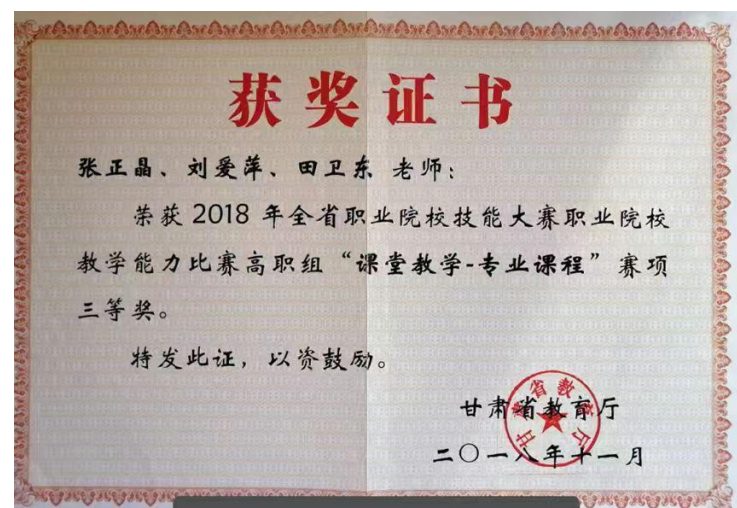 获奖证书
张正晶、刘爱萍、田卫东 老师：
荣获 2018 年全省职业院校技能大赛职业院校
教学能力比赛高职组“课堂教学-专业课程”赛项
三等奖。
特发此证，以资鼓励。
甘肃省教育厅
甘肃省教育厅
二〇一八年十一月